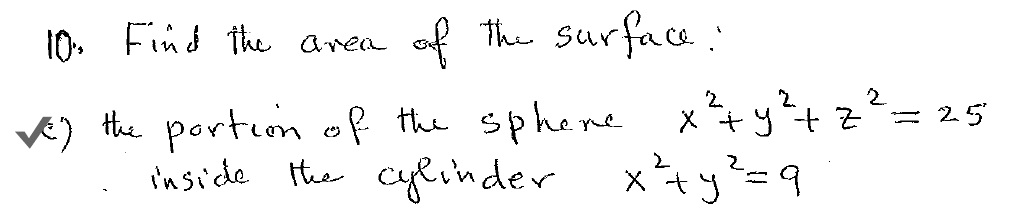 10. Find the area of the surface:
c) the portion of the sphere x²+y²+z²=25
inside the cylinder x²+y²=9